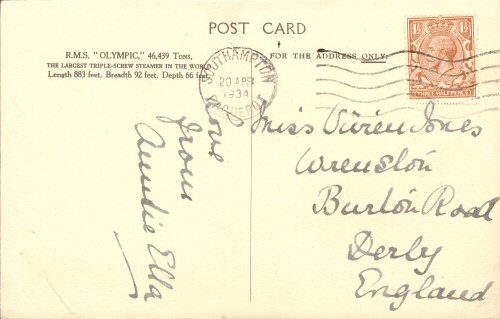 POST CARD
R.M.S. "OLYMPIC," 46,439 TONS,
THE LARGEST TRIPLE-SCREW STEAMER IN THE WORLD
Length 883 feet. Breadth 92 feet. Depth 66 feet
FOR THE ADDRESS ONLY.
SOUTHAMPTON
20 APR
1934
1½ 1½
THREE HALFPENCE
Love
from
Auntie Ella
Miss Vivien Jones
Wrenston
Burton Road
Derby
England